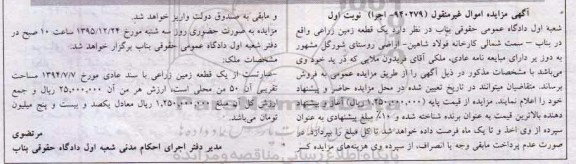 آگهی مزایده اموال غیرمنقول (۹۴۰۲۷۹- اجرا) نوبت اول
شعبه اول دادگاه عمومی حقوقی بناب در نظر دارد یک قطعه زمین زراعی واقع
در بناب – سمت شمالی کارخانه فولاد شاهین- اراضی روستای شورگل مشهور
به دوز یر دارای مبایعه نامه عادی، ملکی آقای فریدون ملایی که در ید خود وی
می‌باشد با مشخصات مذکور در ذیل آگهی را از طریق مزایده عمومی به فروش
برساند. متقاضیان میتوانند در تاریخ تعیین شده در محل مزایده حاضر و پیشنهاد
خود را اعلام نمایند. مزایده از قیمت پایه (۱،۲۵۰،۰۰۰،۰۰۰ ریال) آغاز و پیشنهاد
دهنده بالاترین قیمت به عنوان برنده شناخته شده و ۱۰٪ مبلغ پیشنهادی به عنوان
سپرده از وی اخذ و تا یک ماه فرصت داده خواهد‌شد تا کل مبلغ را بپردازد. در
صورت عدم پرداخت مابقی وجه یا انصراف، از سپرده وی هزینه‌های مزایده کسر
و مابقی به صندوق دولت واریز خواهد شد.
مزایده به صورت حضوری روز سه شنبه مورخ ۱۳۹۵/۱۲/۲۴ ساعت ۱۰ صبح در
دفتر شعبه اول دادگاه عمومی حقوقی بناب برگزار خواهد شد.
مشخصات ملک:
-عبارتست از یک قطعه زمین زراعی با سند عادی مورخ ۱۳۹۴/۷/۷ مساحت
تقریبی آن ۵۰ من محلی است، ارزش هر من آن ۲۵،۰۰۰،۰۰۰ ریال و جمع
ارزش کل آن مبلغ ۱،۲۵۰،۰۰۰،۰۰۰ ریال معادل یکصد و بیست و پنج میلیون
تومان می‌باشد.
مرتضوی
مدیر دفتر اجرای احکام مدنی شعبه اول دادگاه حقوقی بناب